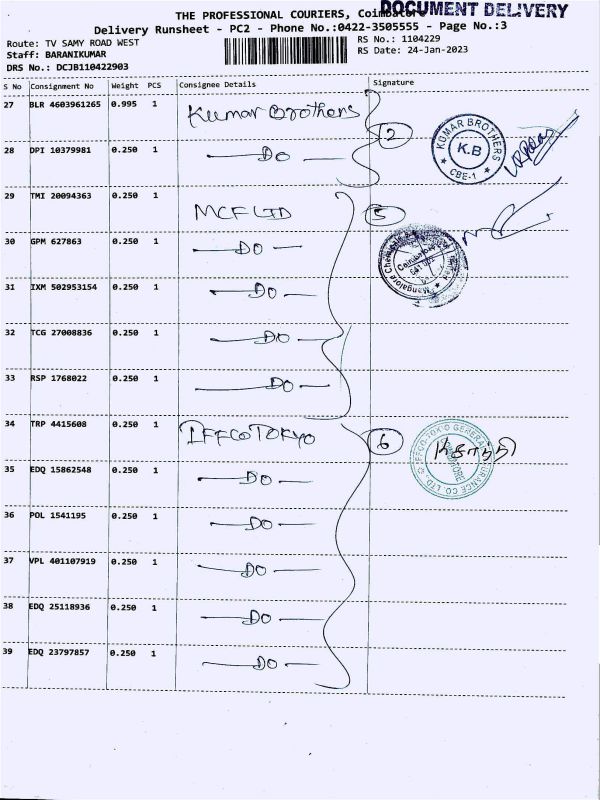 DOCUMENT DELIVERY
THE PROFESSIONAL COURIERS, Coimbatore
Delivery Runsheet - PC2 - Phone No.:0422-3505555 - Page No.:3
Route: TV SAMY ROAD WEST
RS No.: 1104229
Staff: BARANIKUMAR
RS Date: 24-Jan-2023
DRS No.: DCJB110422903
S No Consignment No Weight PCS Consignee Details Signature
27 BLR 4603961265 0.995 1 Kumar Brothers 2
KUMAR BROTHERS
K.B
CBE-1
28 DPI 10379981 0.250 1 — DO —
29 TMI 20094363 0.250 1 MCF LTD 5
30 GPM 627863 0.250 1 — DO —
Mangalore Chemicals
Coimbatore
31 IXM 502953154 0.250 1 — DO —
32 TCG 27008836 0.250 1 — DO —
33 RSP 1768022 0.250 1 — DO —
34 TRP 4415608 0.250 1 IFFCO TOKYO 6
IFFCO-TOKIO GENERAL INSURANCE CO. LTD.
35 EDQ 15862548 0.250 1 — DO —
36 POL 1541195 0.250 1 — DO —
37 VPL 401107919 0.250 1 — DO —
38 EDQ 25118936 0.250 1 — DO —
39 EDQ 23797857 0.250 1 — DO —